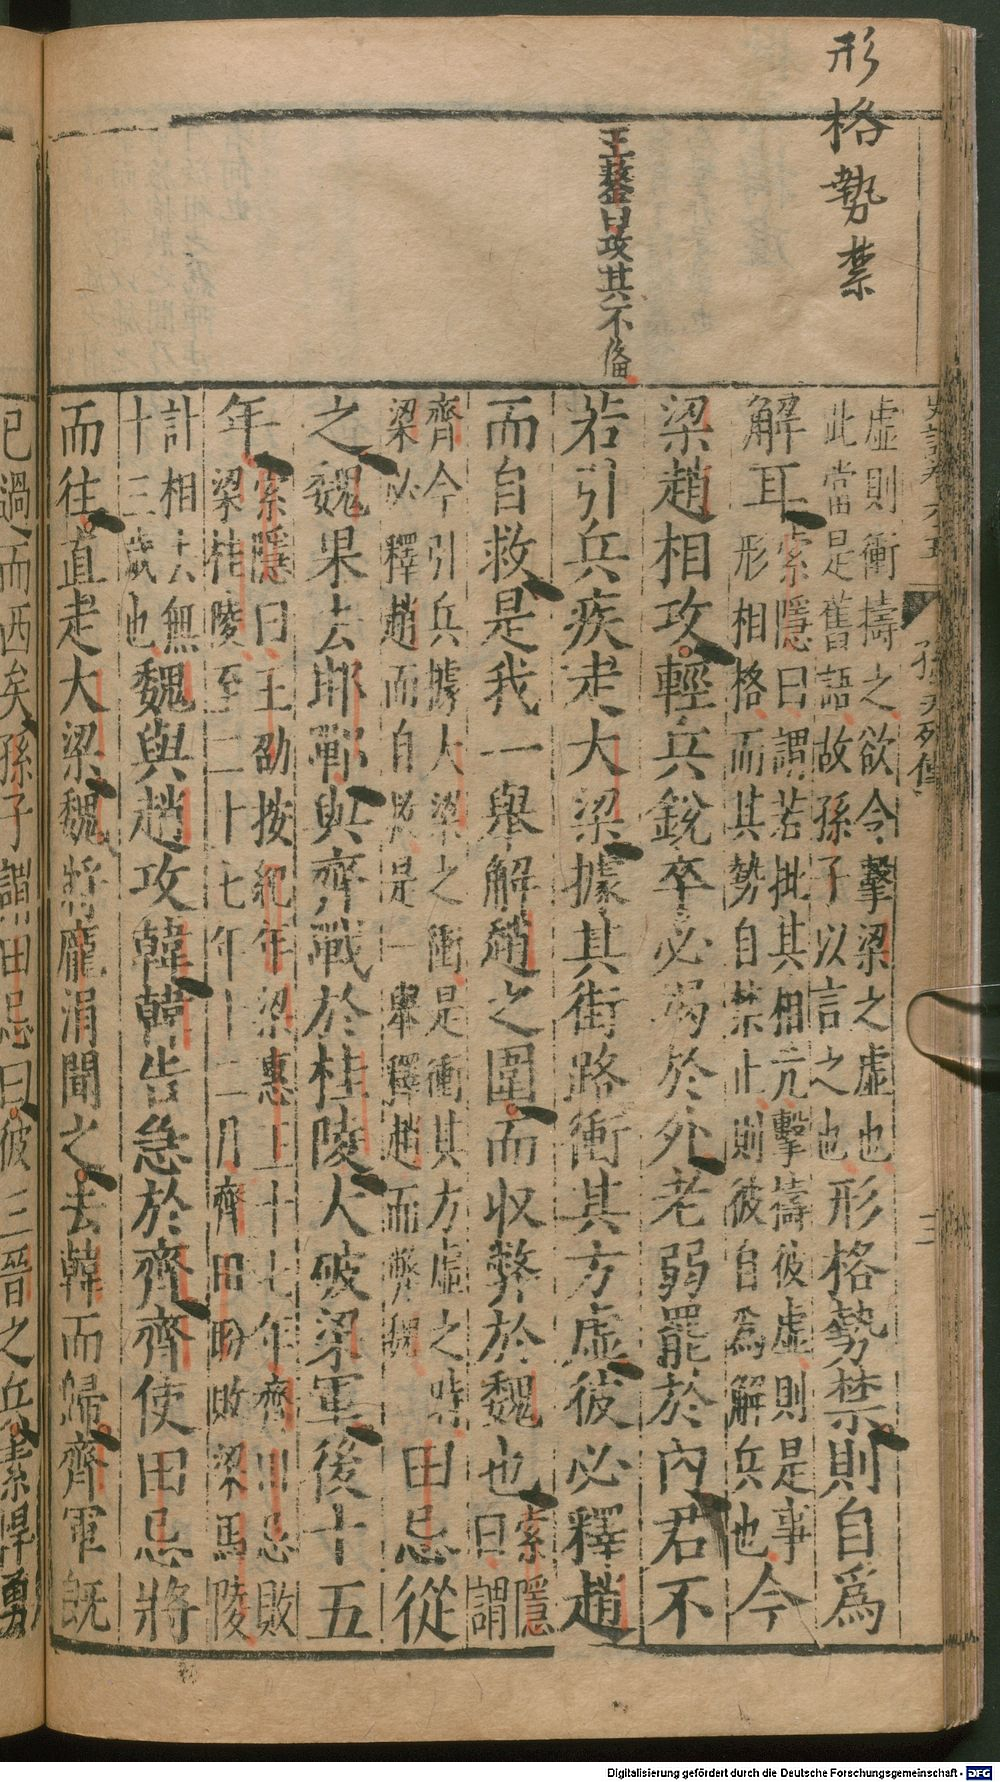 形格勢禁
王鏊曰攻其不備
虛則衝擣之欲令擊梁之虛也
此當是舊語故孫子以言之也
形格勢禁則自爲
解耳
索隱曰謂若批其相亢擊擣彼虛則是事
形相格而其勢自禁止則彼自為解兵也
今
梁趙相攻輕兵銳卒必竭於外老弱罷於內君不
若引兵疾走大梁據其街路衝其方虛彼必釋趙
而自救是我一舉解趙之圍而収弊於魏也
索隱
曰謂
齊今引兵據大梁之衝是衝其方虛之時
梁必釋趙而自救是一舉釋趙而弊魏
田忌從
之魏果去邯鄲與齊戰於桂陵大破梁軍後十五
年
索隱曰王劭按紀年梁惠王十七年齊田忌敗
梁桂陵至二十七年十二月齊田盼敗梁馬陵
計相去無
十三歲也
魏與趙攻韓韓告急於齊齊使田忌將
而往直走大梁魏將龐涓聞之去韓而歸齊軍既
已過而西矣孫子謂田忌曰彼三晉之兵素悍勇
Digitalisierung gefördert durch die Deutsche Forschungsgemeinschaft - DFG